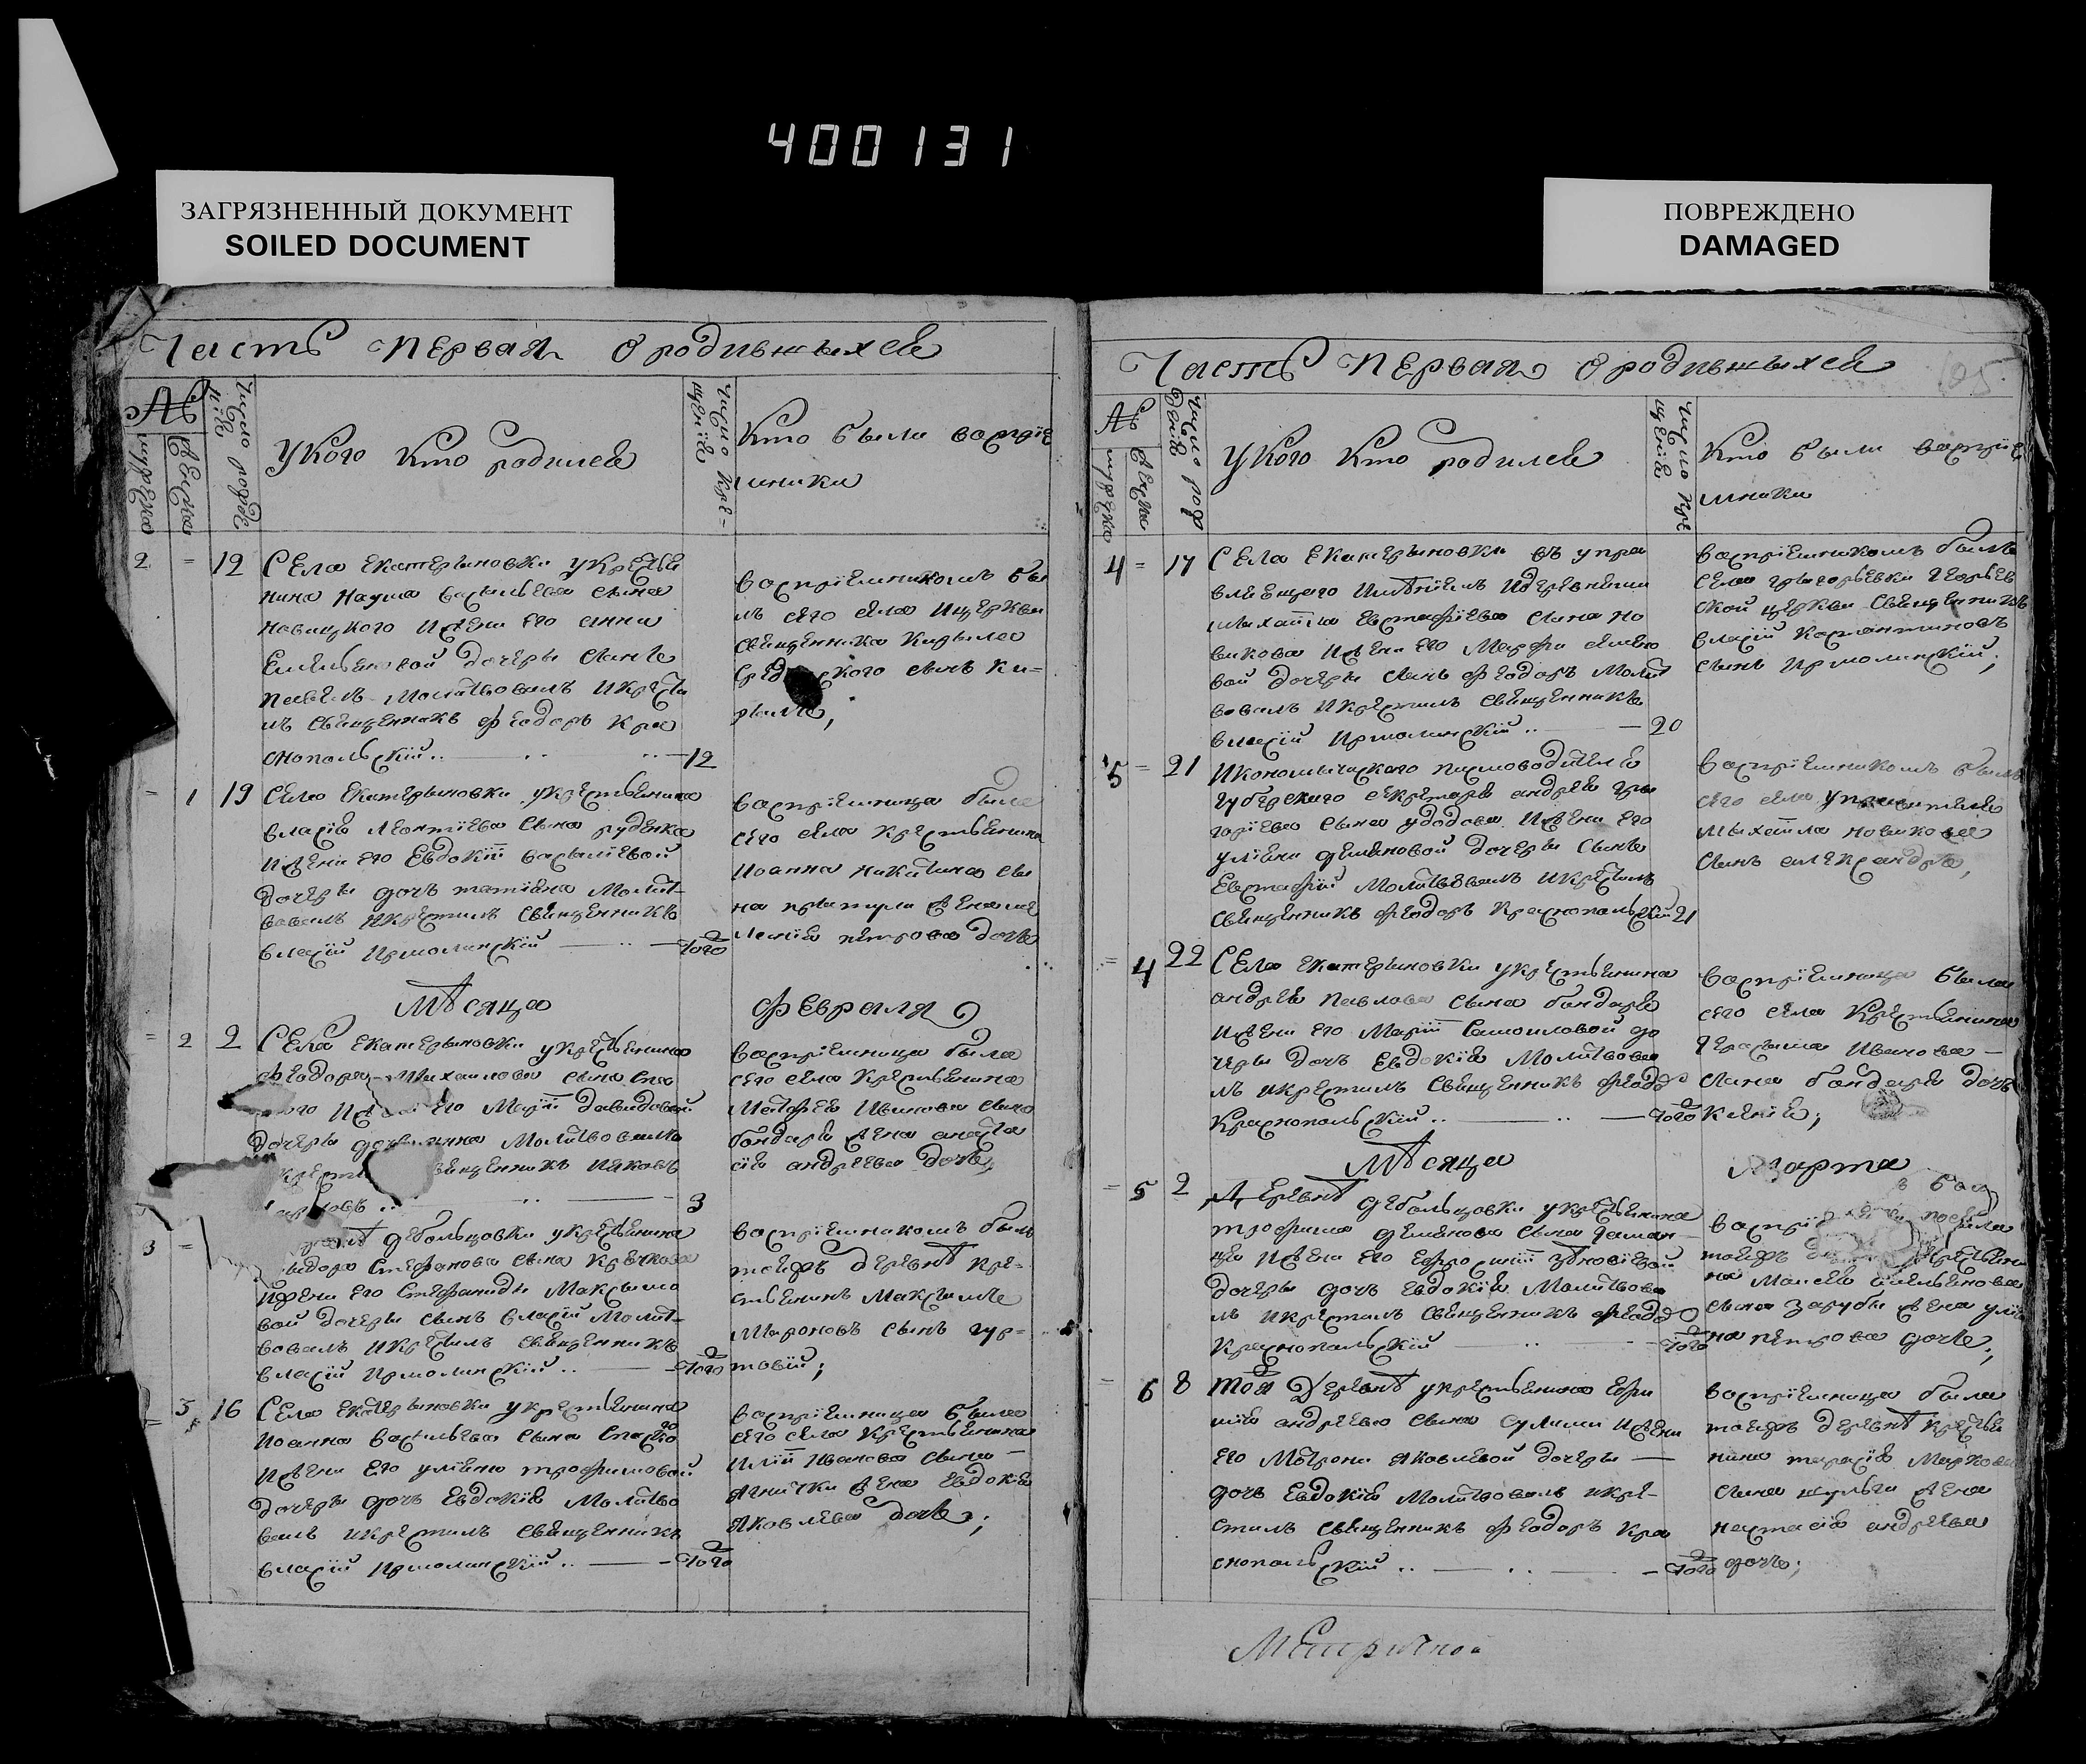 400131
ЗАГРЯЗНЕННЫЙ ДОКУМЕНТ
SOILED DOCUMENT
ПОВРЕЖДЕНО
DAMAGED
Часть первая о родившыхся
№
мужеска
женска
Число рожде
нїя
У кого кто родился
Число кре-
щенїя
Кто были воспрїе
мники
2 = 12 Села Екатерыновки у крестья
нина Наума Васыльева сына
Новицкого и жены его Анны
Емельяновой дочеры сынъ
Павелъ молитвовалъ и крести
лъ священникъ Феодоръ Кра
снопольскїй 12
воспрїемникомъ бы
лъ сего села и церквы
священника Кирыла
сынъ Ки=
рылъ,
= 1 19 Села Екатерыновки у крестьянина
Власїя Леонтїева сына Руденка
и жены его Евдокїи Васылїевой
дочеры дочь Татїяна молит-
вовалъ и крестилъ священникъ
Власїй Ярмолинскїй того
воспрїемница была
сего села крестьянина
Иоанна Никитина сы
на жена
Петрова дочь
Мѣсяца Февраля
= 2 2 Села Екатерыновки у крестьянина
Феодора Михаилова сына
его Марїи Давидовой
дочеры молитвовалъ
священникъ Иаковъ
3
воспрїемница была
сего села крестьянина
Матфея Иванова сына
Бондаря жена Анаста
сїя Андреева дочь,
3 = Дебольцовки у крестьянина
Стефанова сына Крючкова
и жены его Стефаниды Максымо
вой дочеры сынъ Власїй молит-
вовалъ и крестилъ священникъ
Власїй Ярмолинскїй того
воспрїемникомъ былъ
тоежъ деревнѣ кре-
стьянинъ Максымъ
Мироновъ сынъ Гур=
товїй;
= 3 16 Села Екатерыновки у крестьянина
Иоанна Васыльева сына
и жены его Улїяны Трофимовой
дочеры дочь Евдокїя молитво
валъ и крестилъ священникъ
Власїй Ярмолинскїй того
воспрїемница была
сего села крестьянина
Илїи Иванова сына
Ягнички жена Евдокїя
Яковлева дочь;
Часть первая о родившыхся
125
№
мужеска
женска
Число рож
денїя
У кого кто родился
Число кре
щенїя
Кто были воспрїе
мники
4 = 17 Села Екатерыновки въ упра
вляющего имѣнїемъ и деревнями
Михаила Евстафїева сына Но
викова и жены его Марфы
вой дочеры сынъ Феодоръ молит
вовалъ и крестилъ священникъ
Власїй Ярмолинскїй 20
воспрїемникомъ былъ
села Грыгорьевки Георгїев
ской церкви священникъ
Власїй Константиновъ
сынъ Ярмолинскїй;
5 = 21 Икономыческого писмоводителя
губерского секретаря Андрея Гры
горїева сына Удодова и жены его
Улїяны Демяновой дочеры сынъ
Евстафїй молитвовалъ и крестилъ
священникъ Феодоръ Краснопольскїй 21
воспрїемникомъ былъ
сего села управителя
Мыхаила Новикова
сынъ Александръ,
= 4 22 Села Екатерыновки у крестьянина
Андрея Павлова сына Бондаря
и жены его Марїи Самоиловой до
черы дочь Евдокїя молитвова
лъ и крестилъ священникъ Феодо
Краснопольскїй того
воспрїемница была
сего села крестьянина
Герасыма Иванова
сына Бондаря дочь
Ксенїя;
Мѣсяца Марта
= 5 2 Деревнѣ Дебольцовки у крестьянина
Трофима Демянова сына
и жены его Ефросинїи Зѣновїевой
дочеры дочь Евдокїя молитвова
лъ и крестилъ священникъ Феодо
Краснопольскїй того
тоежъ
на Моисея Емельянова
сына Зарубы жена Улїя
на Петрова дочь;
= 6 8 Тоя деревнѣ у крестьянина Ефи
мїя Андреева сына Сулимы и жены
его Мотроны Яковлевой дочеры
дочь Евдокїя молитвовалъ и кре-
стилъ священникъ Феодоръ Кра
снопольскїй того
воспрїемница была
тоежъ деревнѣ крестья
нина Тарасїя Маркова
сына Шульги жена
Настасїя Андреева
дочь;